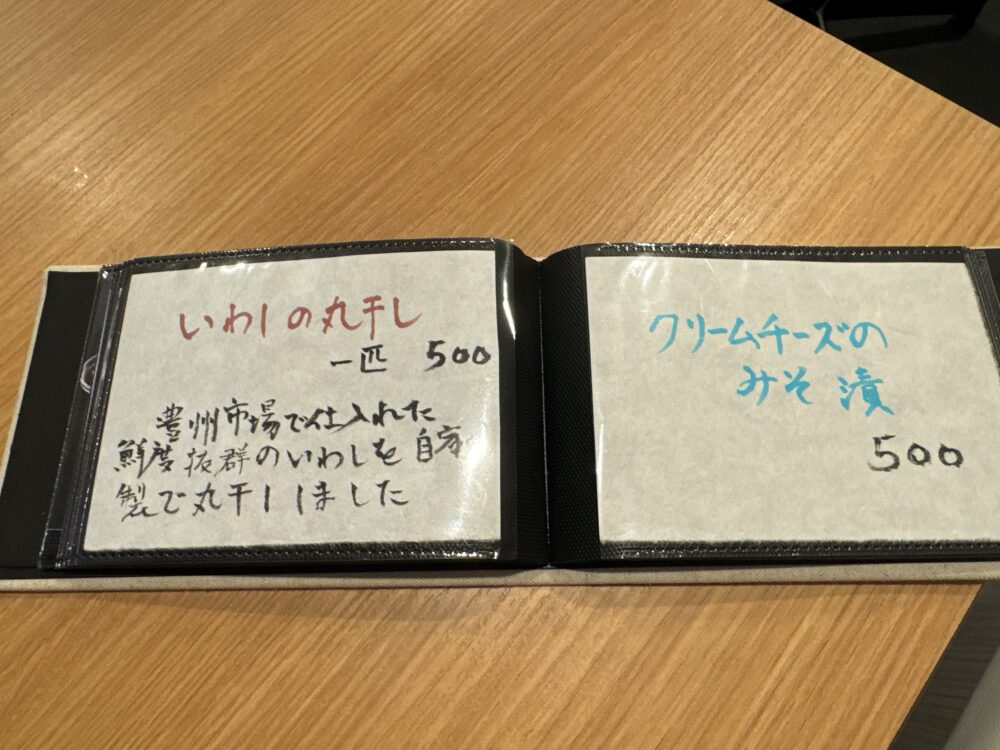 いわしの丸干し
一匹 500
豊州市場で仕入れた
鮮度抜群のいわしを自家
製で丸干ししました
クリームチーズの
みそ漬
500